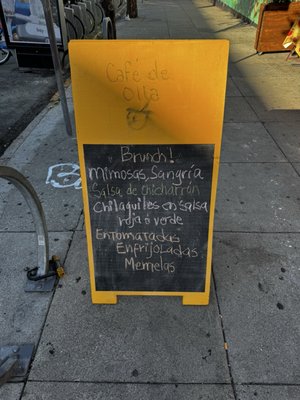 Café de
olla
Brunch!
Mimosas, Sangría
Salsa de chicharrón
Chilaquiles en salsa
roja o verde
Entomatadas
Enfrijoladas
Memelas